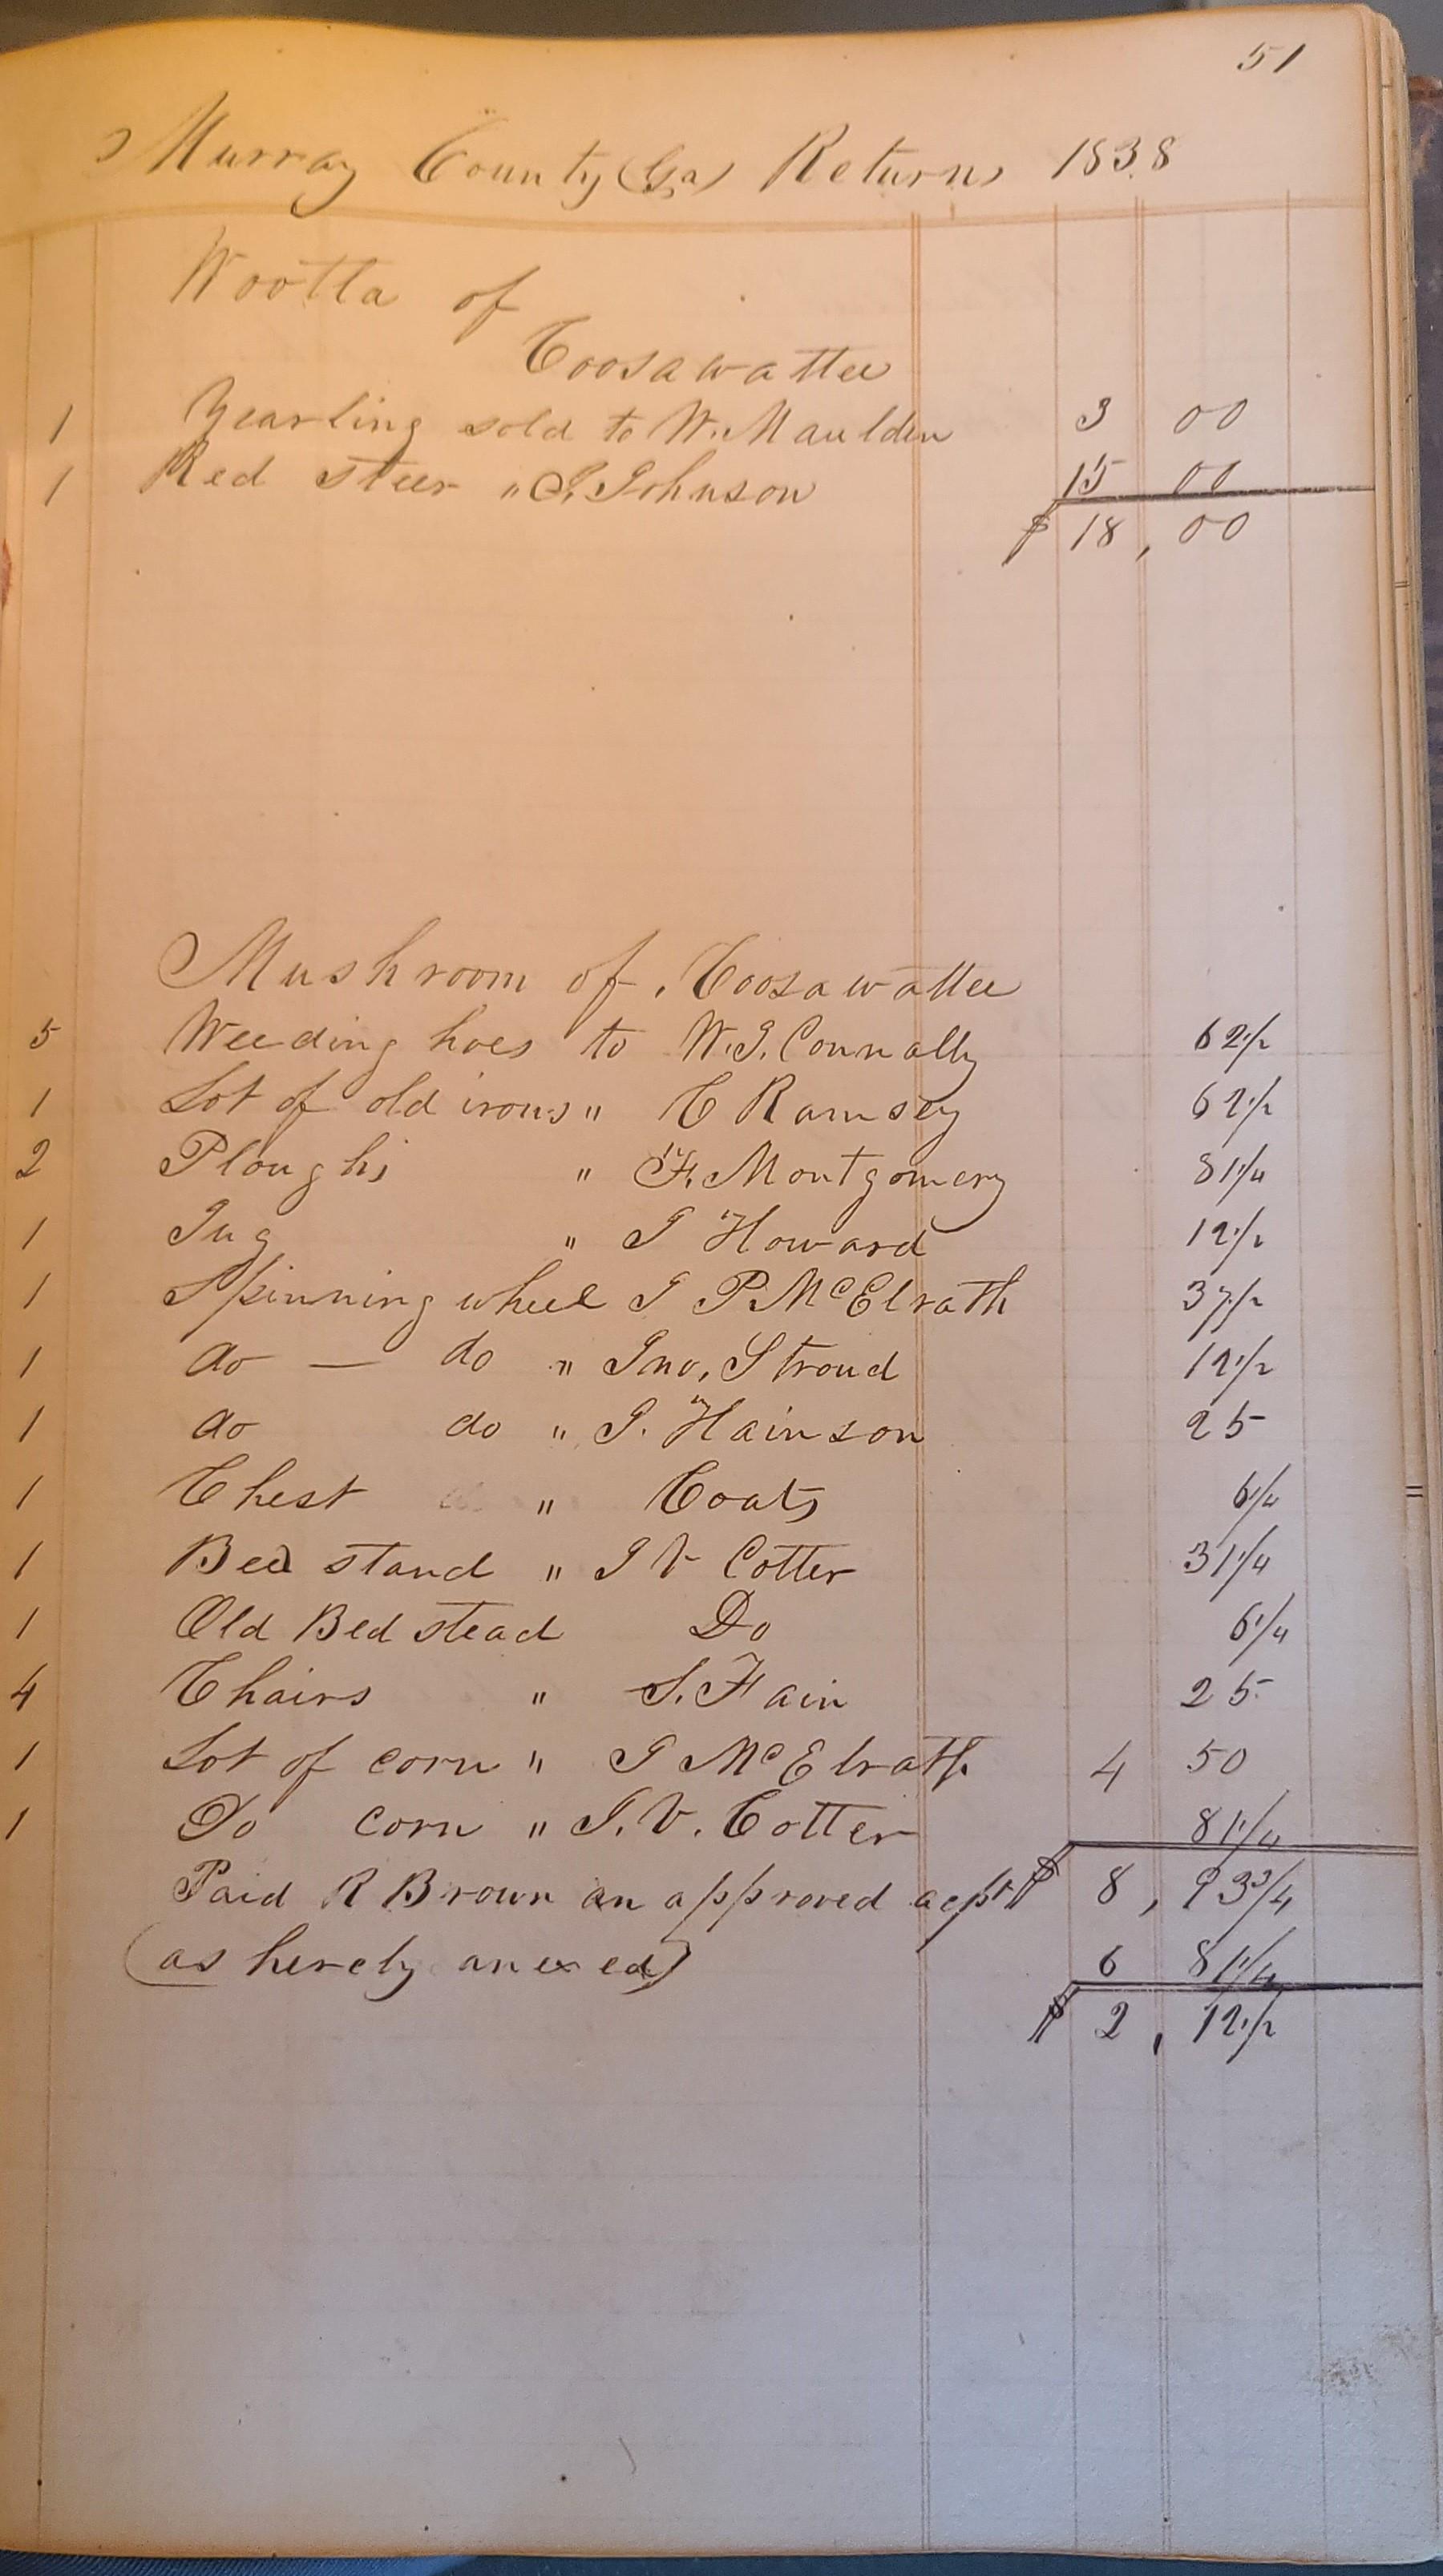 51
Murray County (Ga) Returns 1838
Wootta of
Coosawattee
1 Yearling sold to W. Maulden 3 00
1 Red steer " J. Johnson 15 00
$ 18, 00
Mushroom of Coosawattee
5 Weeding hoes to W. J. Connally 62 1/2
1 Lot of old irons " C Ramsey 62 1/2
2 Ploughs " F. Montgomery 81 1/4
1 Jug " J Howard 12 1/2
1 Spinning wheel J P McElrath 37 1/2
1 do — do " Jno, Stroud 12 1/2
1 do do " J. Hainson 25
1 Chest " Coats 6 1/4
1 Bed stand " J V Cotter 31 1/4
1 Old Bed stead Do 6 1/4
4 Chairs " S. Fain 25
1 Lot of corn " J McElrath 4 50
1 Do corn " J. V. Cotter 81 1/4
Paid R Brown an approved acpt $ 8, 93 3/4
(as herely anexed) 6 81 1/4
$ 2, 12 1/2